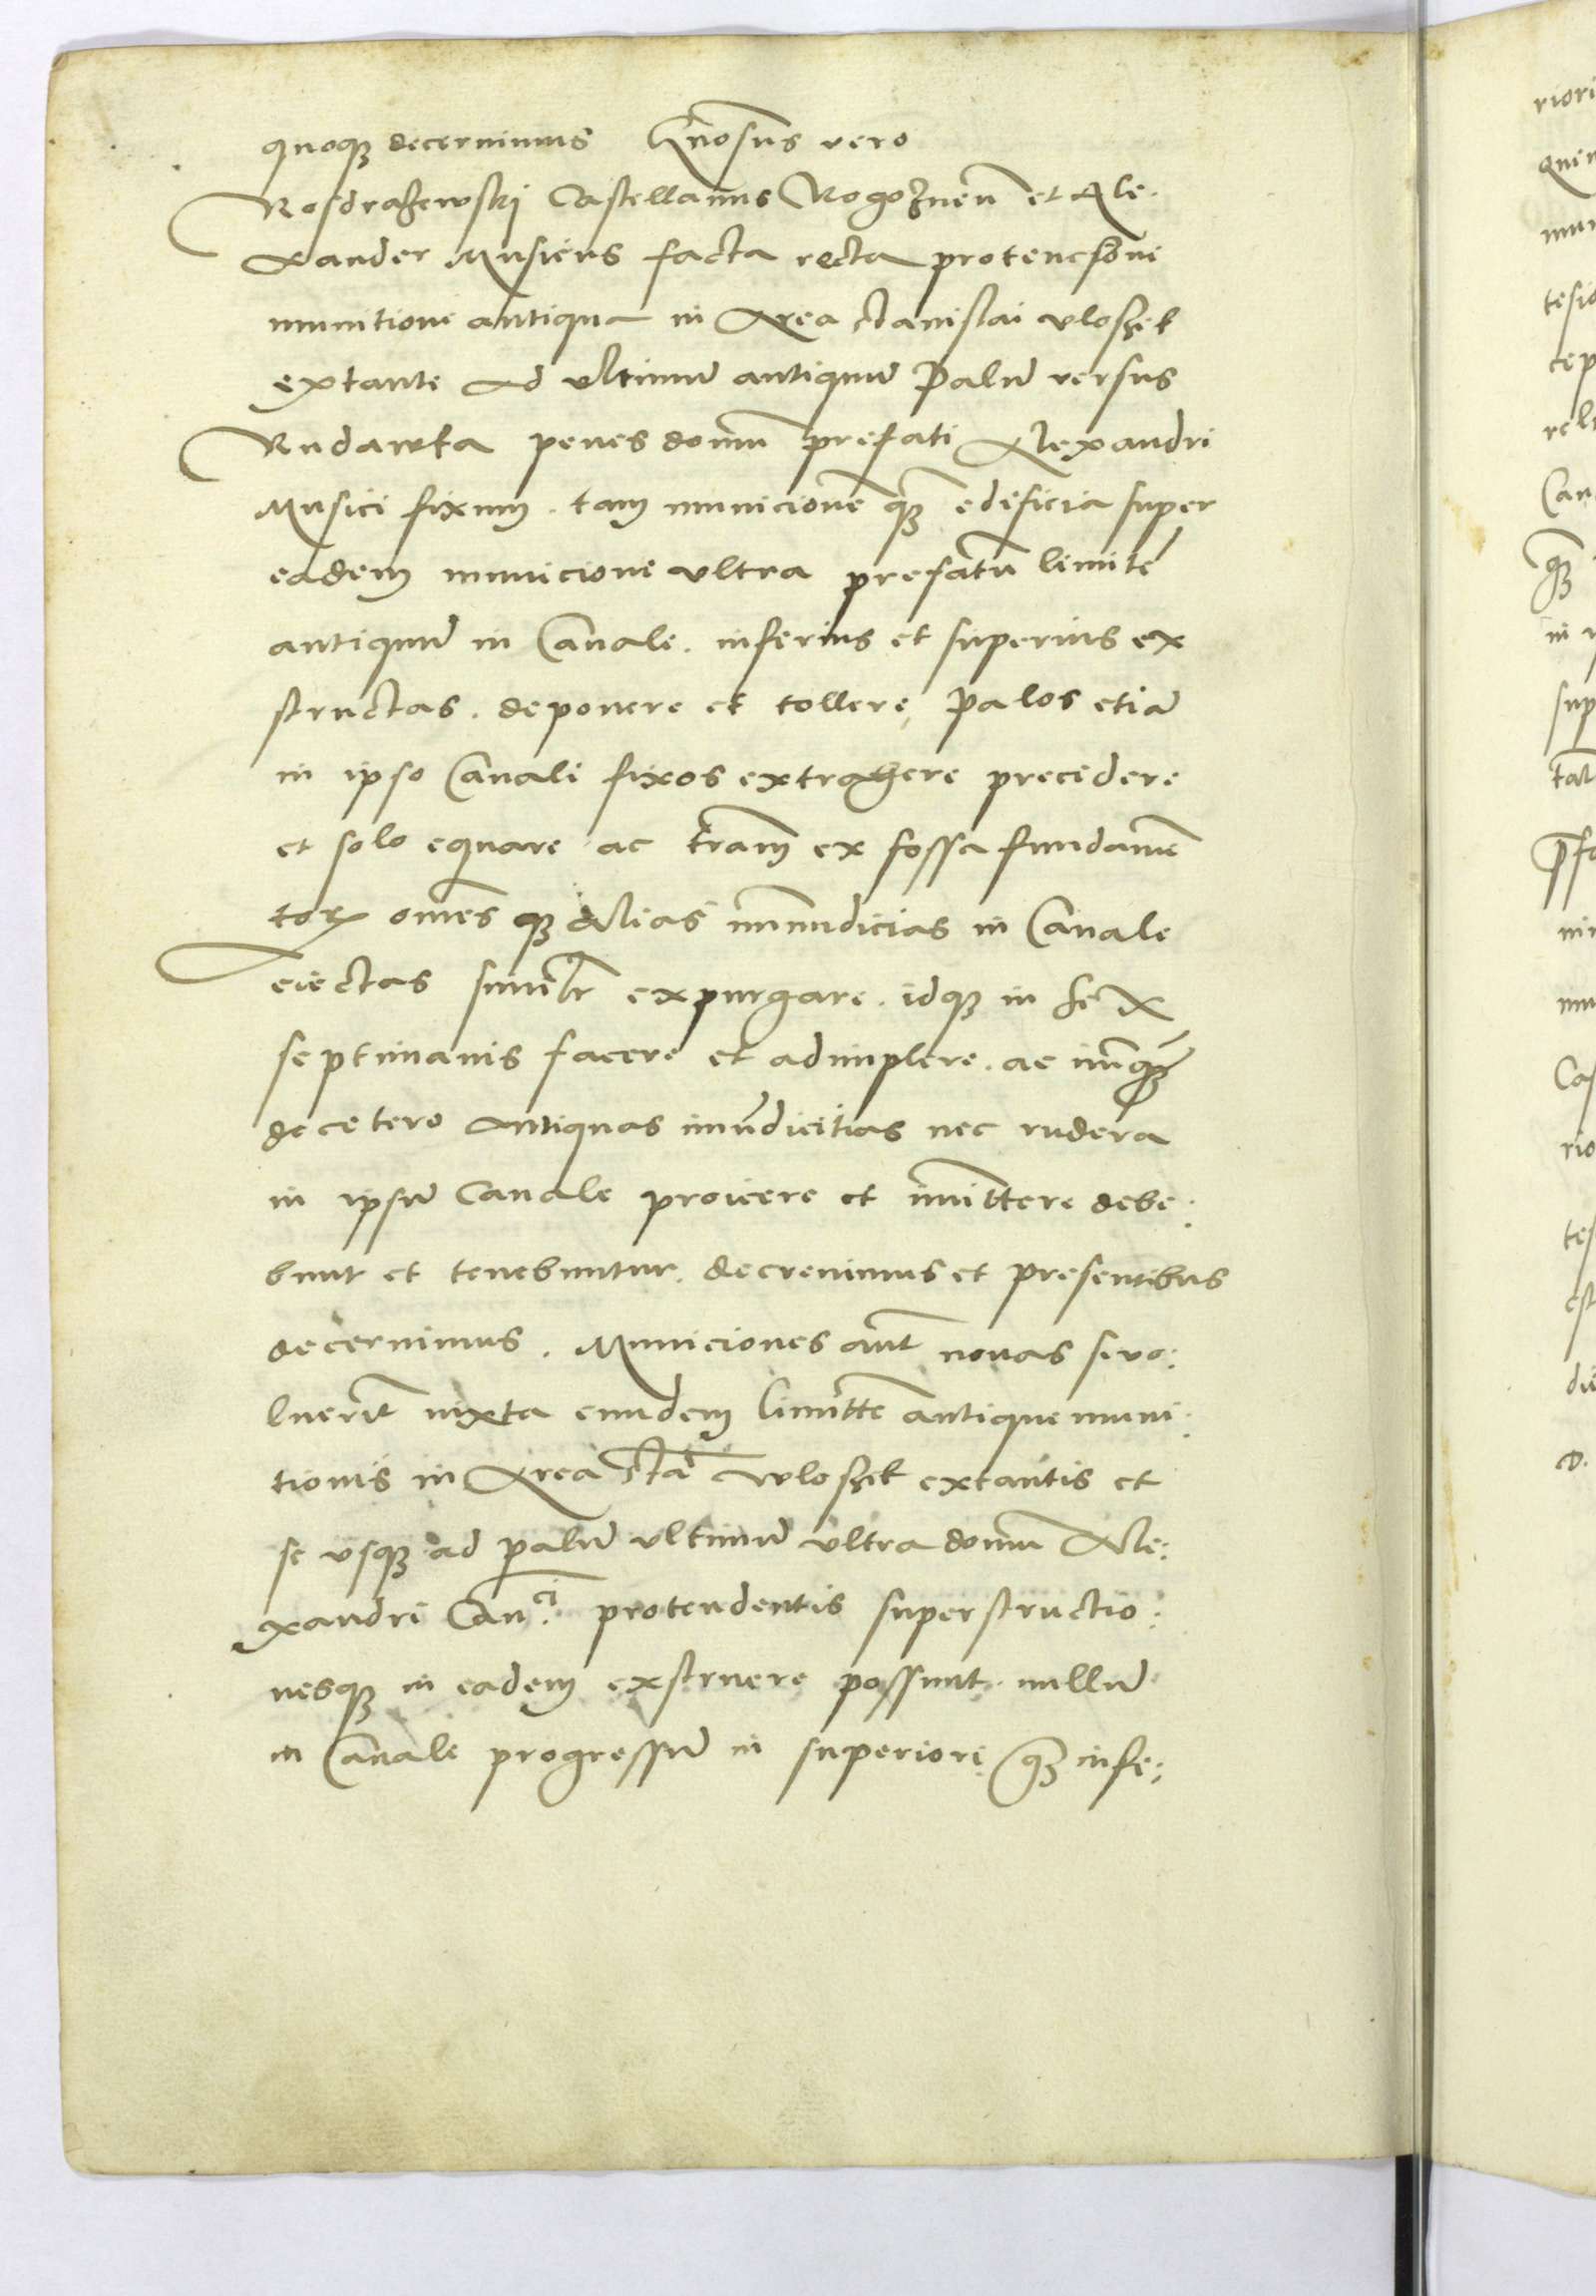 quoqȝ decernimus Gnosus vero
Rosdrazewskj Castellanus Rogoznen̄ et Ale.
xander Musicus facta recta protencione
munitione antiqua in Area stanislai vloszek
extante Ad vltimū antiquū Palū versus
Rudawka penes domū prefati Alexandri
Musici fixum. tam municionē qȝ edificia super
eadem municione vltra prefatū limitē
antiquū in Canale. inferius et superius ex
structas. deponere et tollere, Palos etiā
in ipso Canali fixos extrahere precidere
et solo equare ac trām ex fossa fundamē
torꝝ omēs qȝ Alias immundicias in Canale
eiectas simīlr expurgare. idqȝ in sex
septimanis facere et adimplere. ac nūqȝ
de cetero Antiquas imūdicitias nec rudera
in ipsū Canale proicere et imittere debe:
bunt et tenebuntur. decrevimus et presentibus
decernimus. Municiones aūt novas si vo:
luerīt iuxta eundem limittē antique muni:
tionis in Area stā wloszek extantis et
se vsqȝ ad palū vltimū vltra domū Ale:
xandri Canci protendentis superstructio:
nesqȝ in eadem exstruere possunt. nullū
in Canale progressū in superiori qȝ infe:
riori
tesi
cep
Can
qȝ
in
sup
Cas
rio
tes
est
die